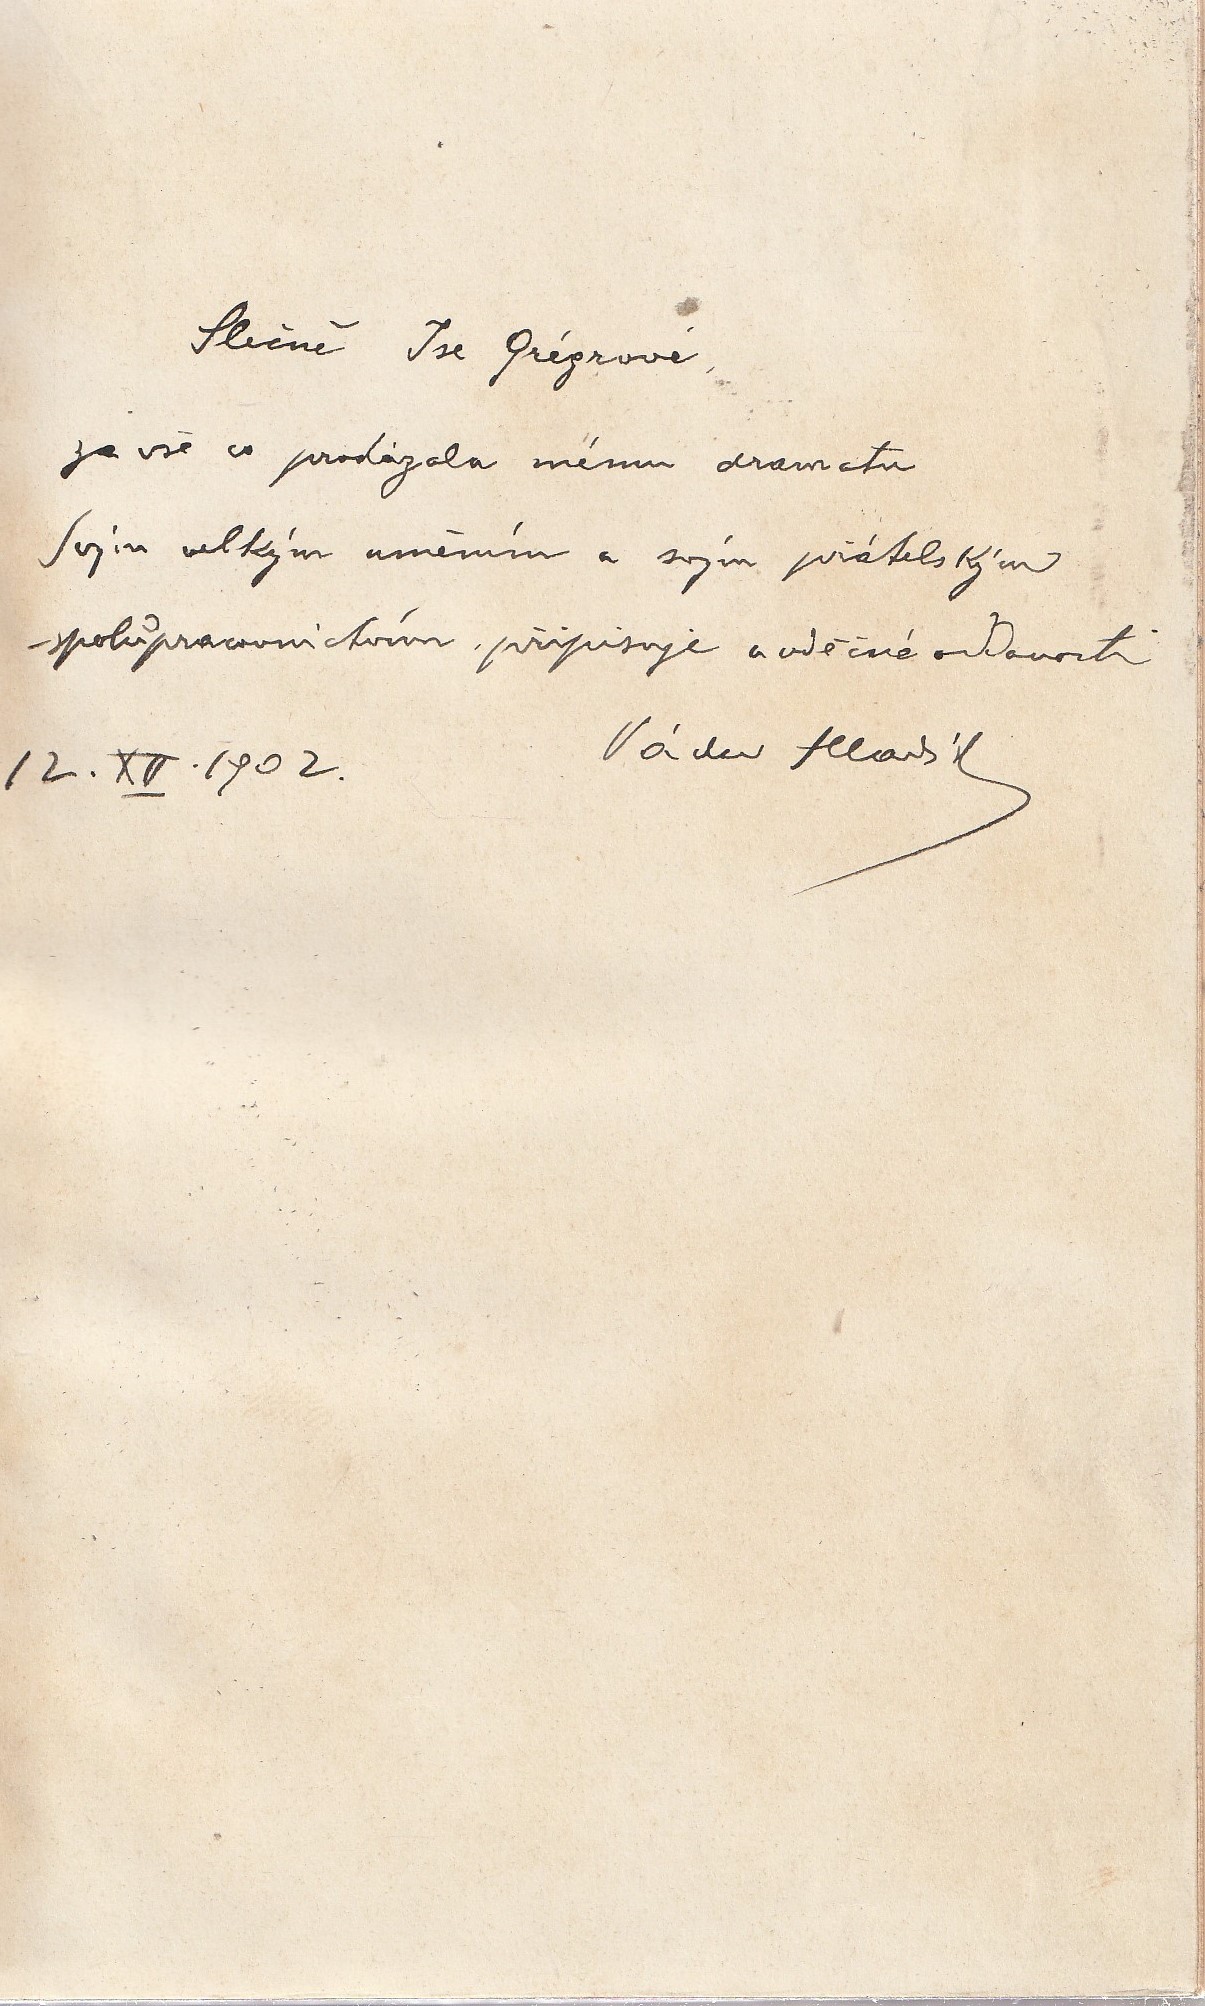 Slečně Ise Grégrové,
za vše co prokázala mému dramatu
svým velkým uměním a svým přátelským
spolupracovnictvím, připisuje v vděčné oddanosti
Václav Hladík
12. XII. 1902.